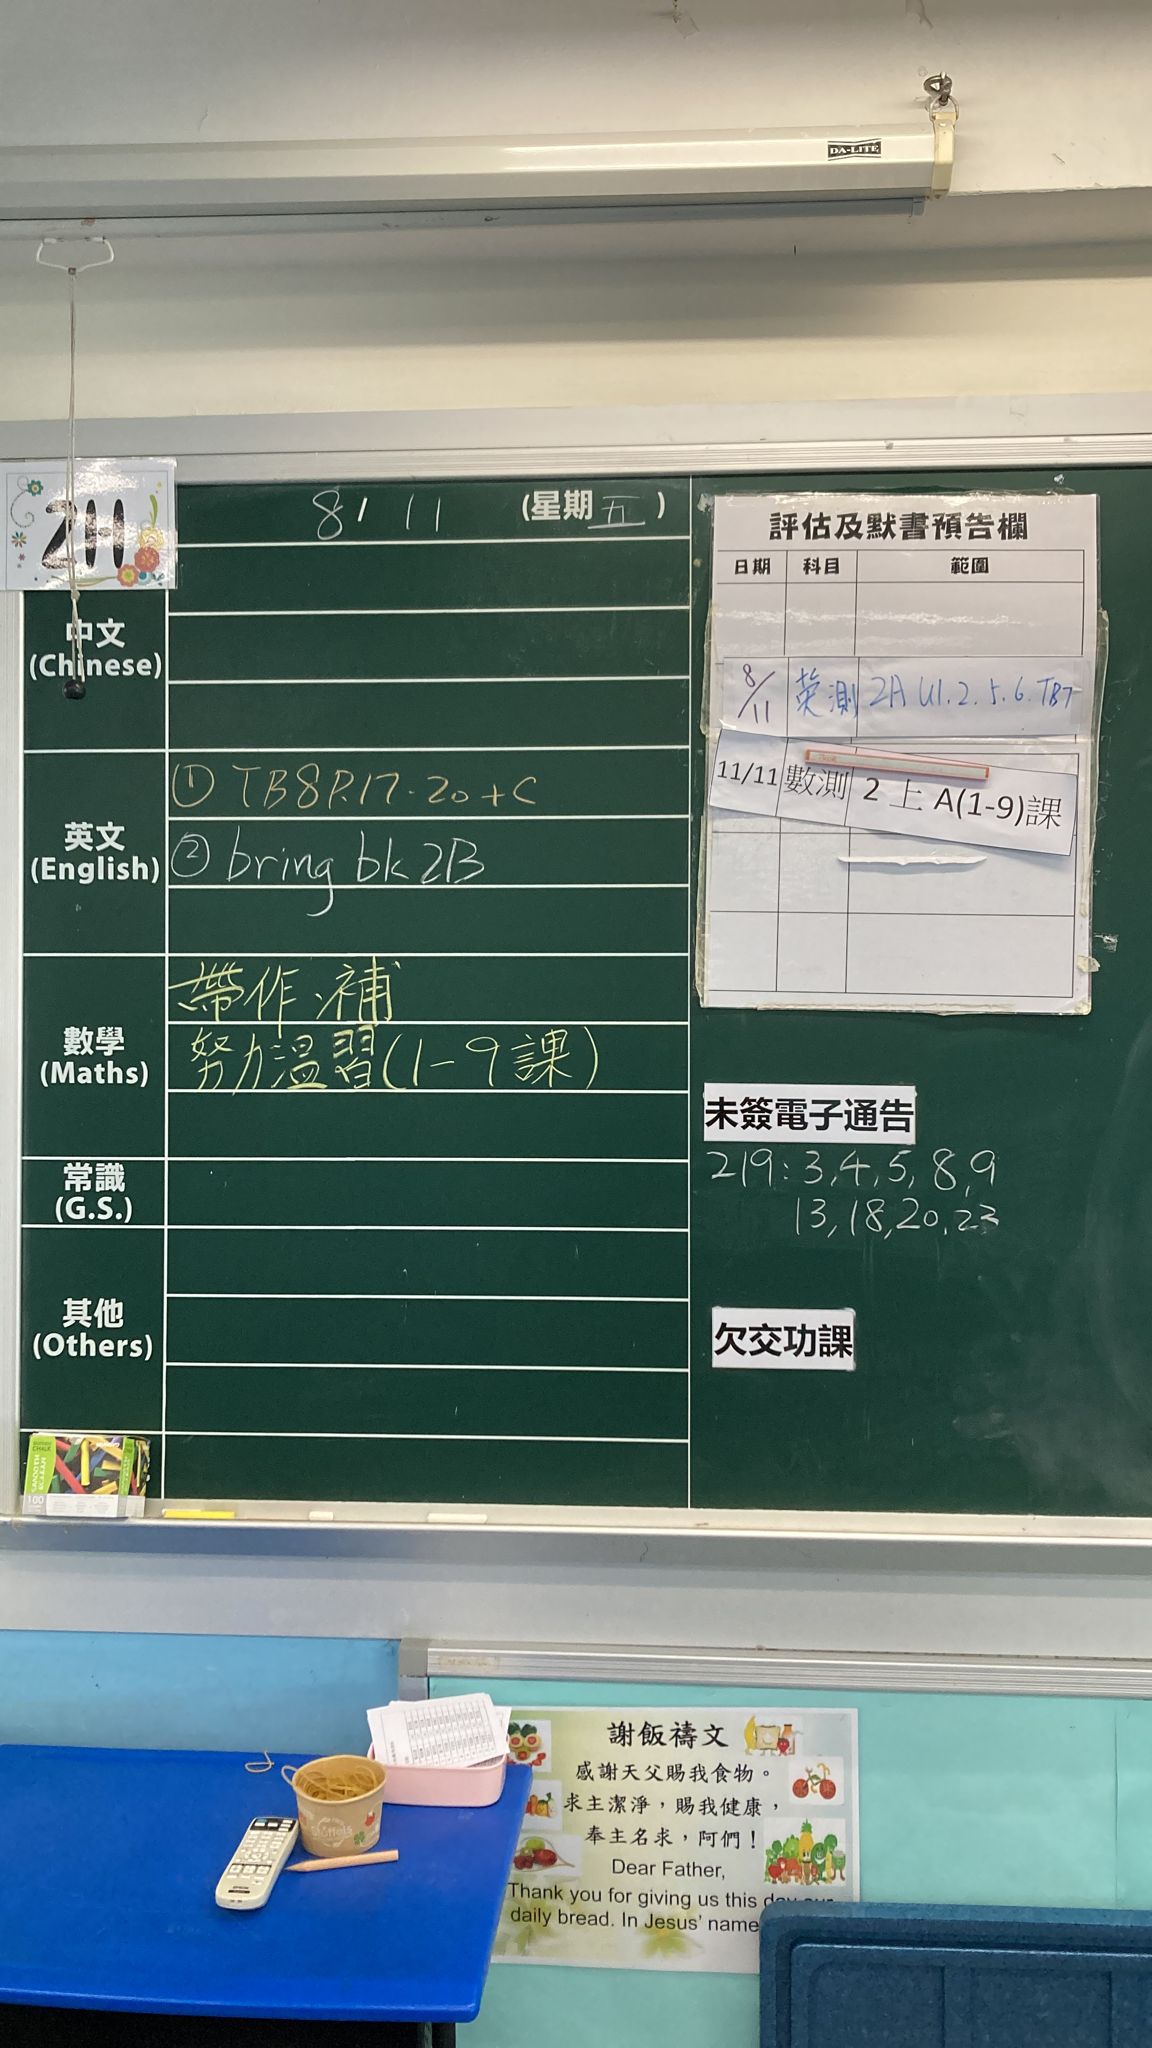 DA-LITE
2H
8/ 11 (星期 五 )
中文
(Chinese)
英文
(English)
① TB8 P.17-20 + C
② bring bk 2B
數學
(Maths)
帶作、補
努力溫習(1-9課)
常識
(G.S.)
其他
(Others)
評估及默書預告欄
日期 科目 範圍
8/11 英測 2A U1.2.5.6.TB7
11/11 數測 2上A(1-9)課
未簽電子通告
219: 3,4,5,8,9
13,18,20,23
欠交功課
CHALK
100
謝飯禱文
感謝天父賜我食物。
求主潔淨，賜我健康，
奉主名求，阿們！
Dear Father,
Thank you for giving us this day our
daily bread. In Jesus' name